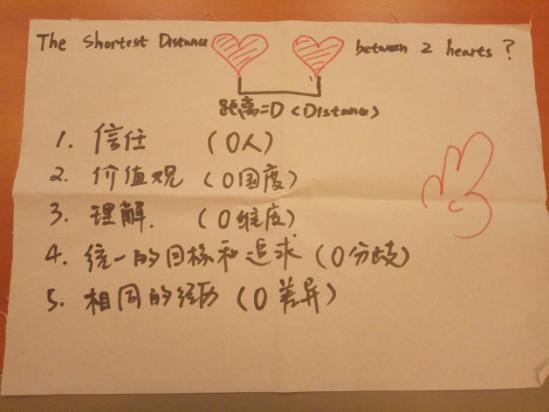 The Shortest Distance between 2 hearts ?
距离=D (Distance)
1. 信任 (0人)
2. 价值观 (0国度)
3. 理解. (0维度)
4. 统一的目标和追求 (0分歧)
5. 相同的经历 (0差异)